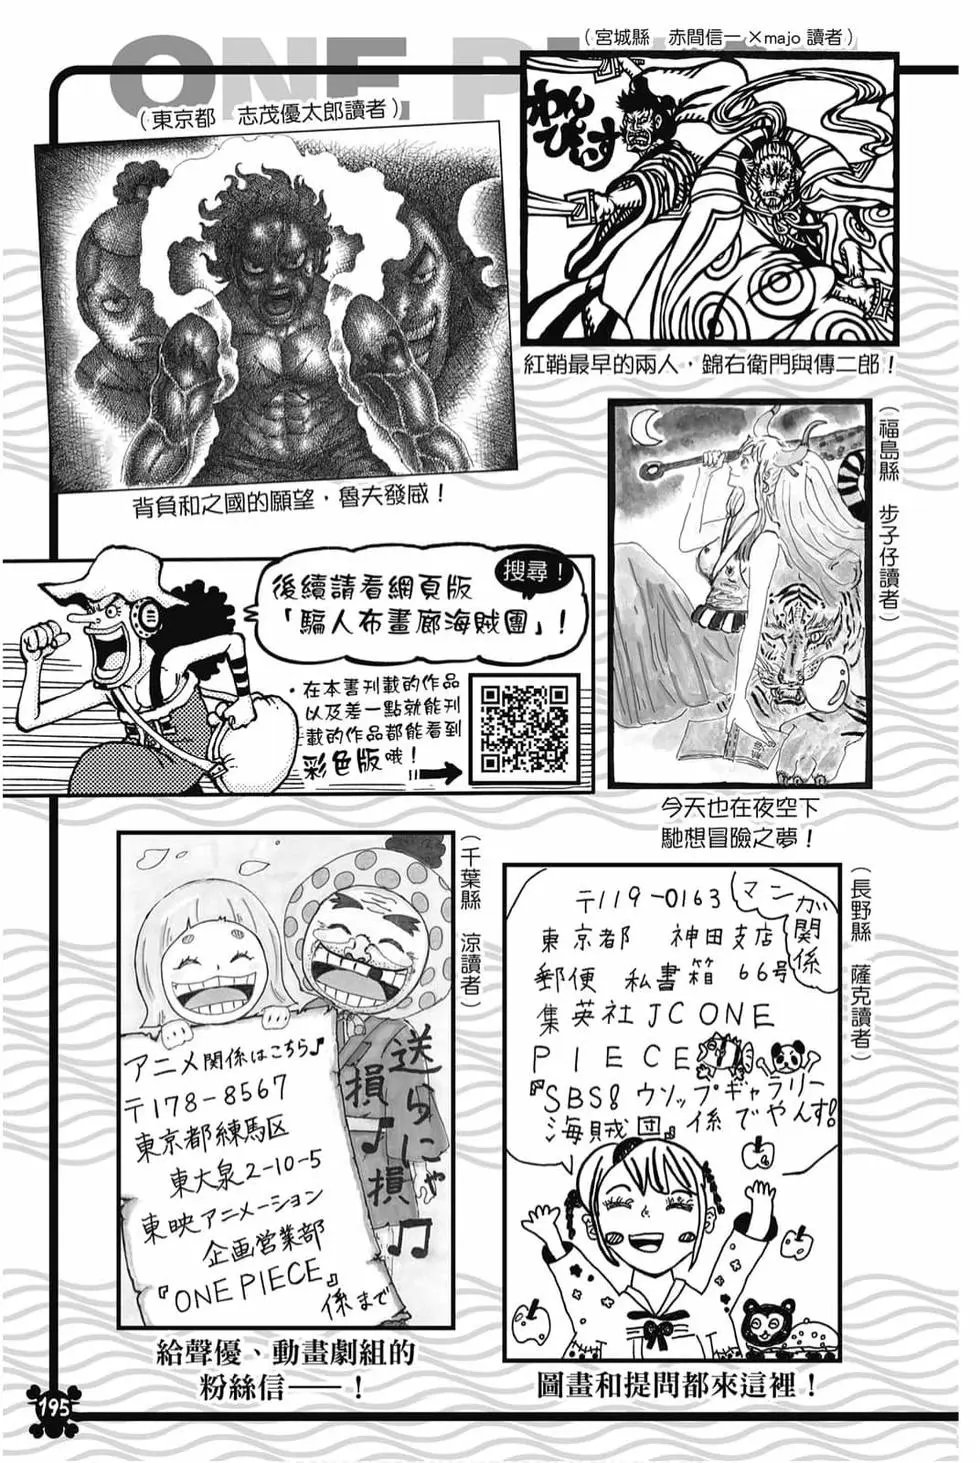 ONE PIECE
（宮城縣　赤間信一×majo 讀者）
わん
ぴーす
紅鞘最早的兩人，錦右衛門與傳二郎！
（東京都　志茂優太郎讀者）
背負和之國的願望，魯夫發威！
（福島縣　步子仔讀者）
今天也在夜空下
馳想冒險之夢！
搜尋！
後續請看網頁版
「騙人布畫廊海賊團」！
・在本書刊載的作品
以及差一點就能刊
載的作品都能看到
彩色版哦！
（千葉縣　涼讀者）
アニメ関係はこちら♪
〒178-8567
東京都練馬区
東大泉2-10-5
東映アニメーション
企画営業部
『ONE PIECE』
係まで
送らにゃ
損♪損♫
給聲優、動畫劇組的
粉絲信——！
（長野縣　薩克讀者）
マンガ関係
〒119-0163
東京都　神田支店
郵便　私書箱　66号
集英社JC ONE
PIECE
『SBS！ウソップギャラリー
海賊団』係でやんす！
圖畫和提問都來這裡！
195